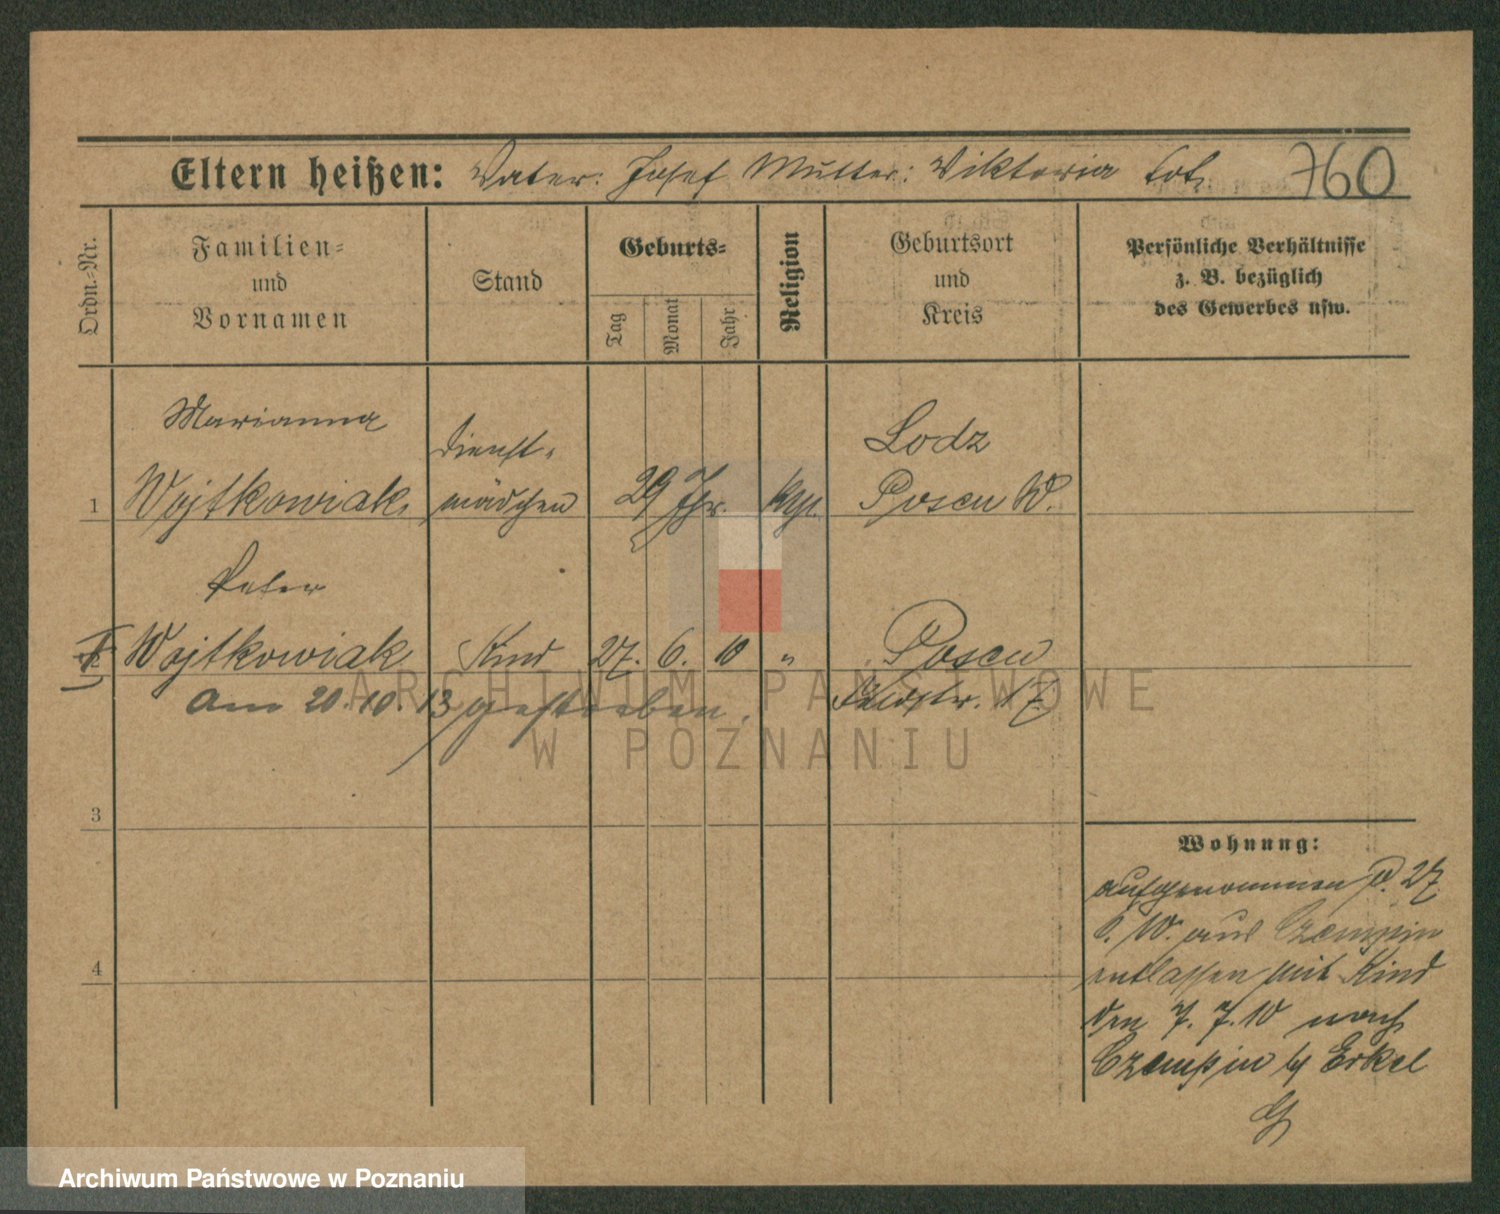 Eltern heißen: Vater: Josef Mutter: Viktoria tot, 760
Ordn.-Nr.
Familien-
und
Vornamen
Stand
Geburts-
Tag
Monat
Jahr
Religion
Geburtsort
und
Kreis
Persönliche Verhältnisse
z. B. bezüglich
des Gewerbes usw.
Marianna
Dienst-
Lodz
1 Wojtkowiak, mädchen 29 Jhr. Posen W.
Peter
Wojtkowiak Kind 27. 6. 10 " Posen
am 20.10.13 gestorben. 17
3
4
Wohnung:
aufgenommen 27.
6. 10. aus Czempin
entlassen mit Kind
den 7. 7. 10 nach
Czempin Erkel
ARCHIWUM PAŃSTWOWE
W POZNANIU
Archiwum Państwowe w Poznaniu